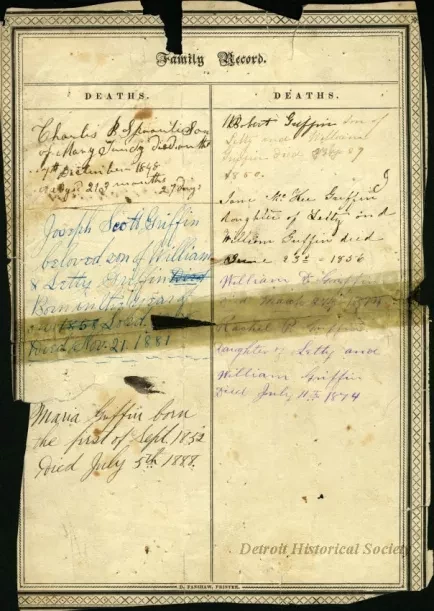 Family Record.
DEATHS.
Charles B. Son
of Mary died on the
7th December 1848
Aged 21, 9 months
27 days
Joseph Scott Griffin
beloved son of William
& Letty Griffin
Born in the year of
Died Nov. 21 1881
Maria Griffin born
the first of Sept. 1852
Died July 5th 1888.
DEATHS.
Robert Griffin son of
Letty and William
Griffin died
1850.
Jane McKee Griffin
daughter of Letty and
William Griffin died
June 23d = 1856
William
died March
Rachel P. Griffin
daughter of Letty and
William Griffin
Died July 11th 1874
Detroit Historical Society
D. FANSHAW, PRINTER.